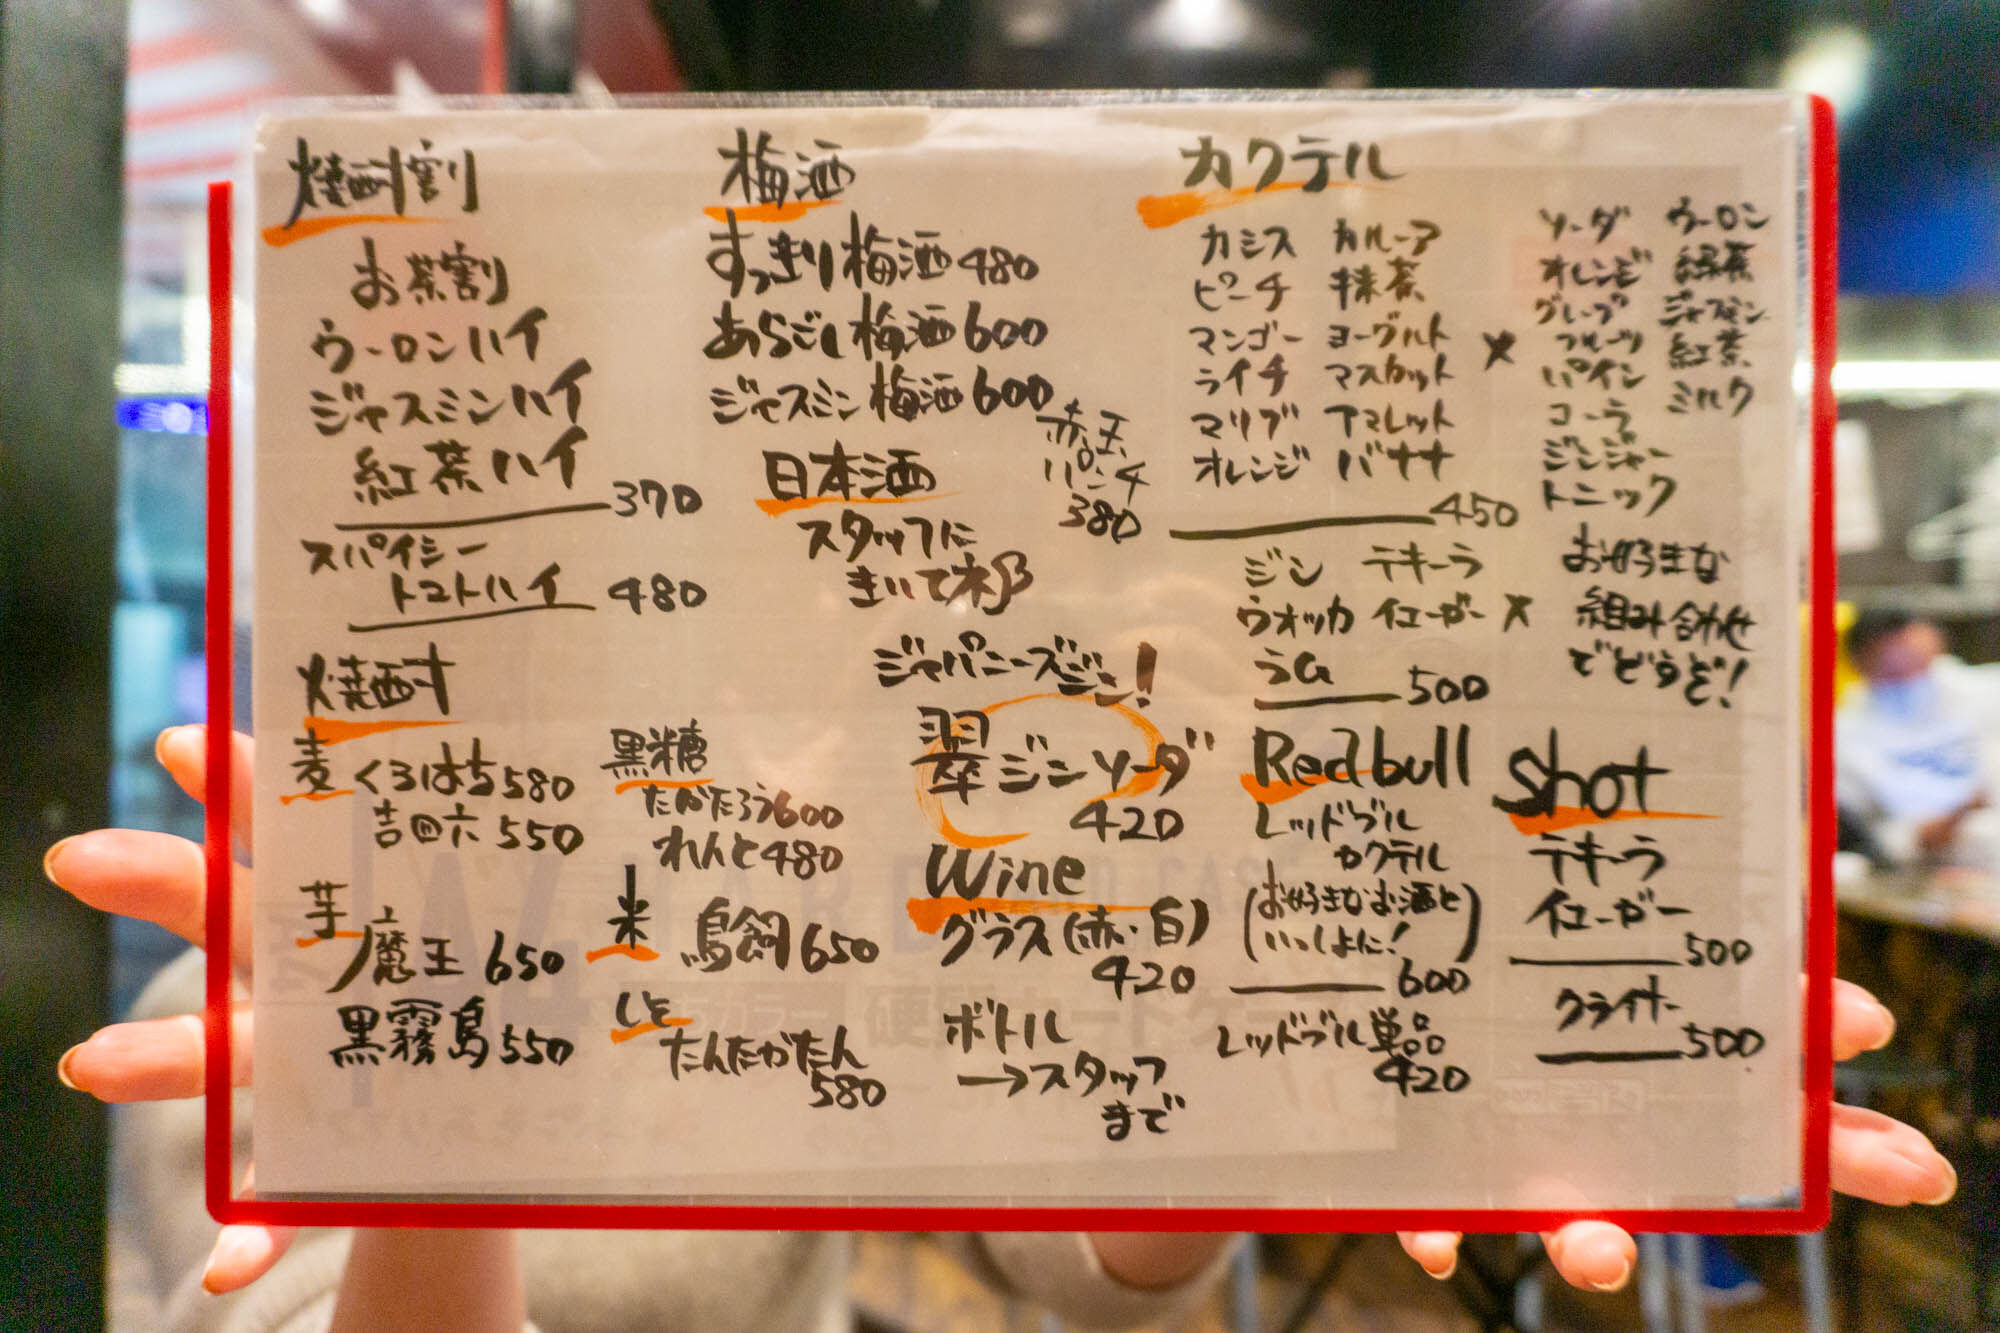 焼酎割
お茶割
ウーロンハイ
ジャスミンハイ
紅茶ハイ
370
スパイシー
トマトハイ 480
焼酎
麦 くろはち 580
吉四六 550
芋 魔王 650
黒霧島 550
黒糖
たかたろう 600
れんと 480
米 鳥飼 650
しそ
たんたかたん
580
梅酒
すっきり梅酒 480
あらごし梅酒 600
ジャスミン梅酒 600
赤玉
パンチ
380
日本酒
スタッフに
きいてネ
ジャパニーズジン!
翠ジンソーダ
420
Wine
グラス(赤・白)
420
ボトル
→スタッフ
まで
カクテル
カシス カルーア
ピーチ 抹茶
マンゴー ヨーグルト ×
ライチ マスカット
マリブ アマレット
オレンジ バナナ
450
ジン テキーラ
ウォッカ イエーガー ×
ラム
500
ソーダ ウーロン
オレンジ 緑茶
グレープ ジャスミン
フルーツ 紅茶
パイン ミルク
コーラ
ジンジャー
トニック
お好きな
組み合わせ
でどうぞ!
Redbull
レッドブル
カクテル
(お好きなお酒と
いっしょに!)
600
レッドブル単品
420
Shot
テキーラ
イエーガー
500
クライナー
500